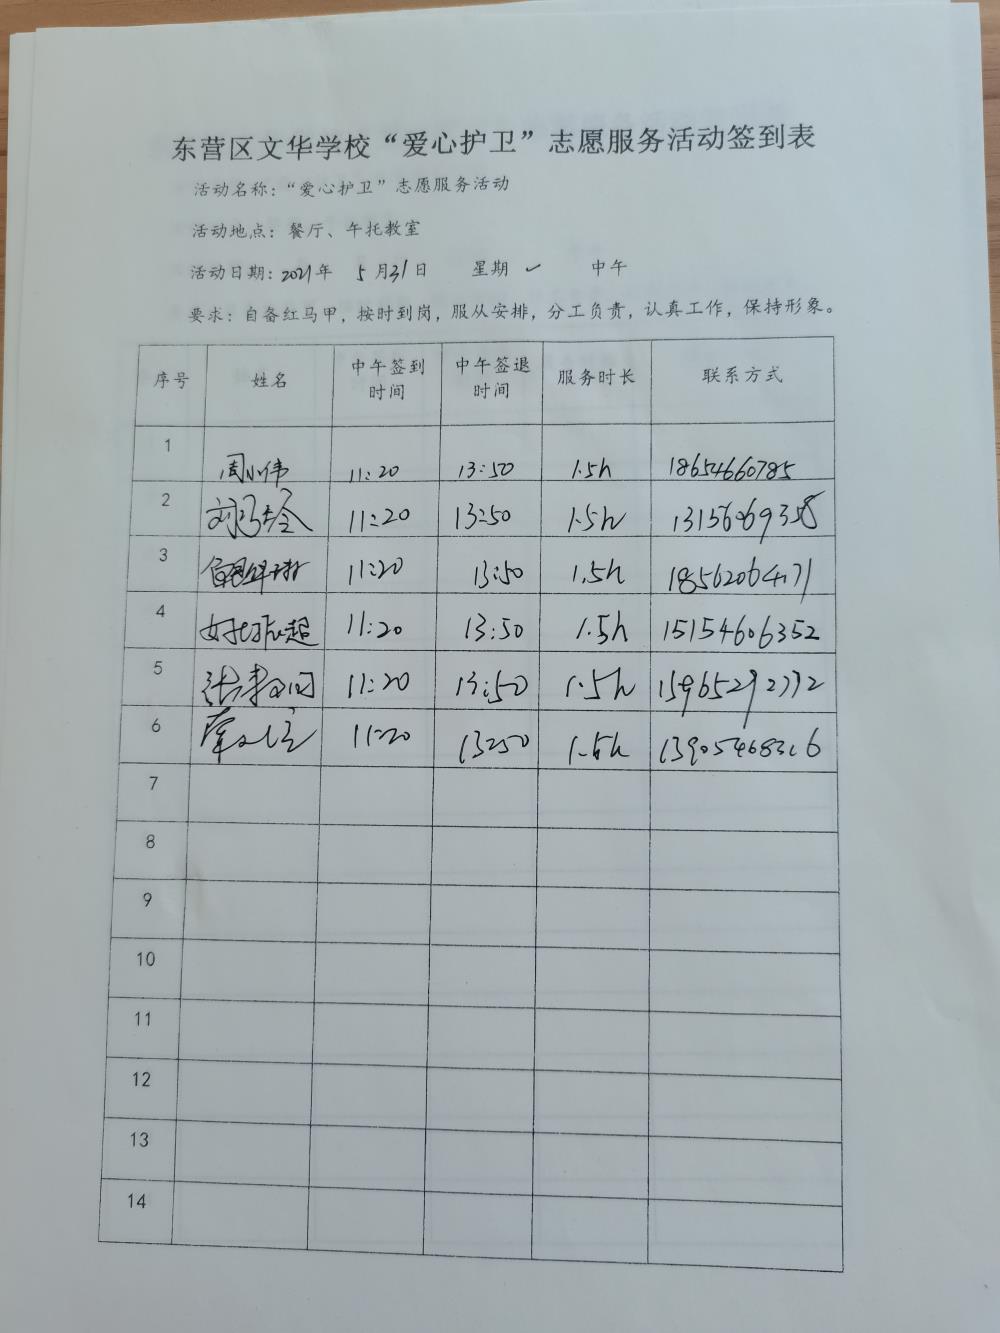 东营区文华学校“爱心护卫”志愿服务活动签到表
活动名称：“爱心护卫”志愿服务活动
活动地点：餐厅、午托教室
活动日期：2021年 5月31日 星期一 中午
要求：自备红马甲，按时到岗，服从安排，分工负责，认真工作，保持形象。
序号 姓名 中午签到时间 中午签退时间 服务时长 联系方式
1 周小伟 11:20 13:50 1.5h 18654660785
2 11:20 13:50 1.5h 13156069358
3 11:20 13:50 1.5h 18562064171
4 11:20 13:50 1.5h 15154606352
5 11:20 13:50 1.5h 15965292772
6 11:20 13:50 1.5h 13905468316
7
8
9
10
11
12
13
14